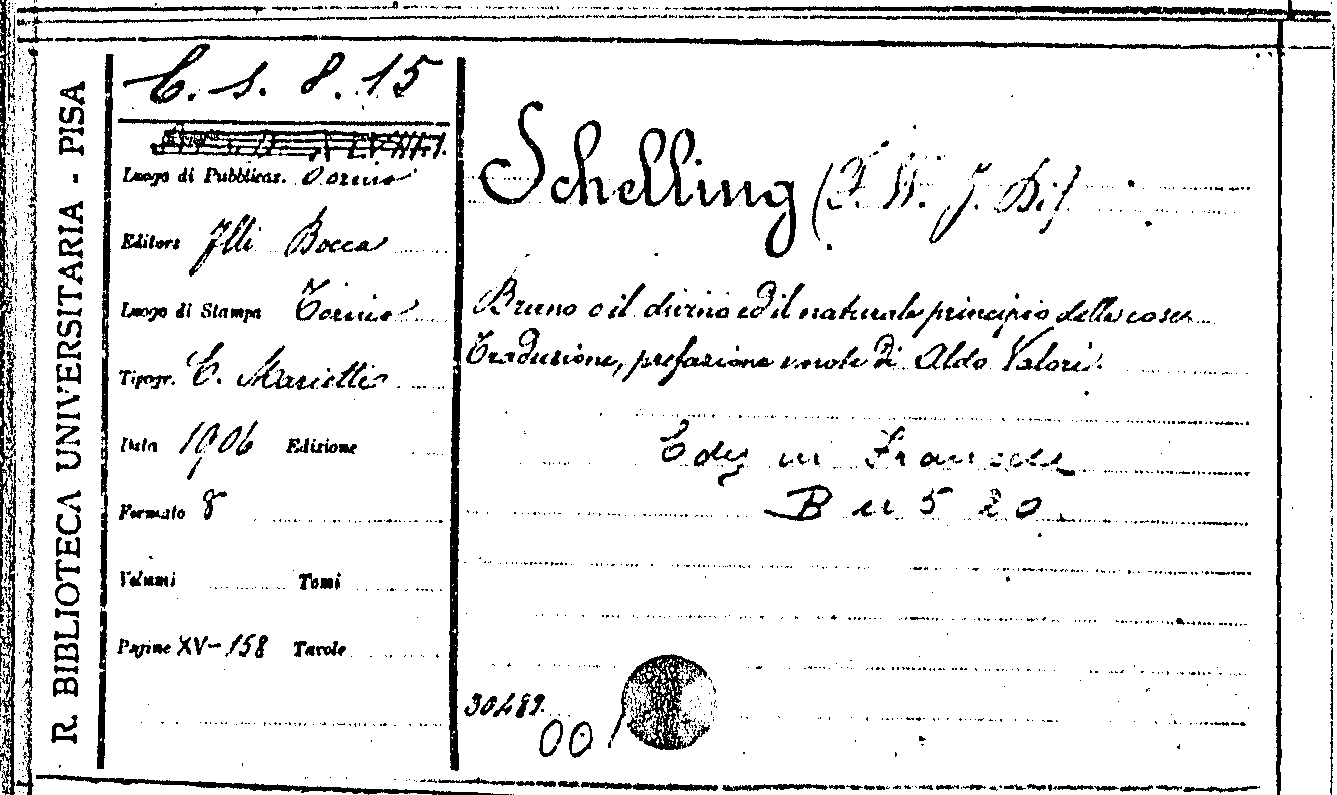 R. BIBLIOTECA UNIVERSITARIA - PISA
C. s. 8. 15
Luogo di Pubblicaz. Torino
Editore Flli Bocca
Luogo di Stampa Torino
Tipogr. C. Marietti
Data 1906 Edizione
Formato 8
Volumi Tomi
Pagine XV-158 Tavole
Schelling (F. W. J. Di)
Bruno o il divino ed il naturale principio delle cose
Traduzione, prefazione e note di Aldo Valori.
in
B u 5 20
30482
00